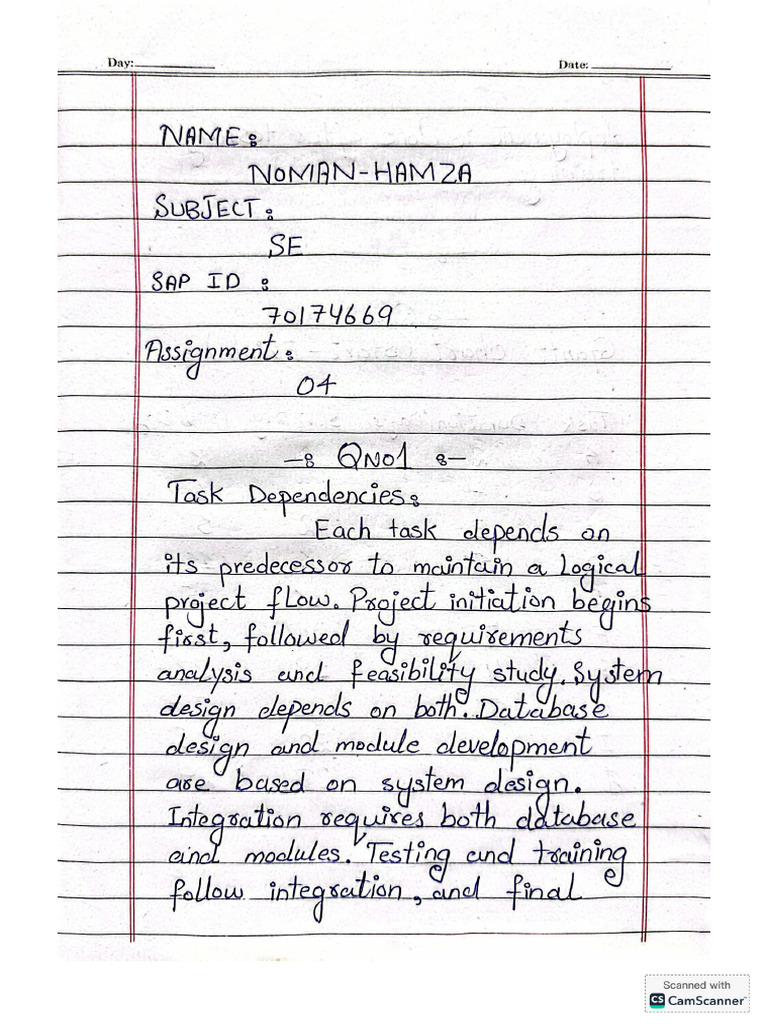 Day:
Date:
NAME:
NOMAN-HAMZA
SUBJECT:
SE
SAP ID :
70174669
Assignment:
04
-: QNo1 :-
Task Dependencies:
Each task depends on
its predecessor to maintain a Logical
project flow. Project initiation begins
first, followed by requirements
analysis and feasibility study. System
design depends on both. Database
design and module development
are based on system design.
Integration requires both database
and modules. Testing and training
follow integration, and final
Scanned with
CS CamScanner